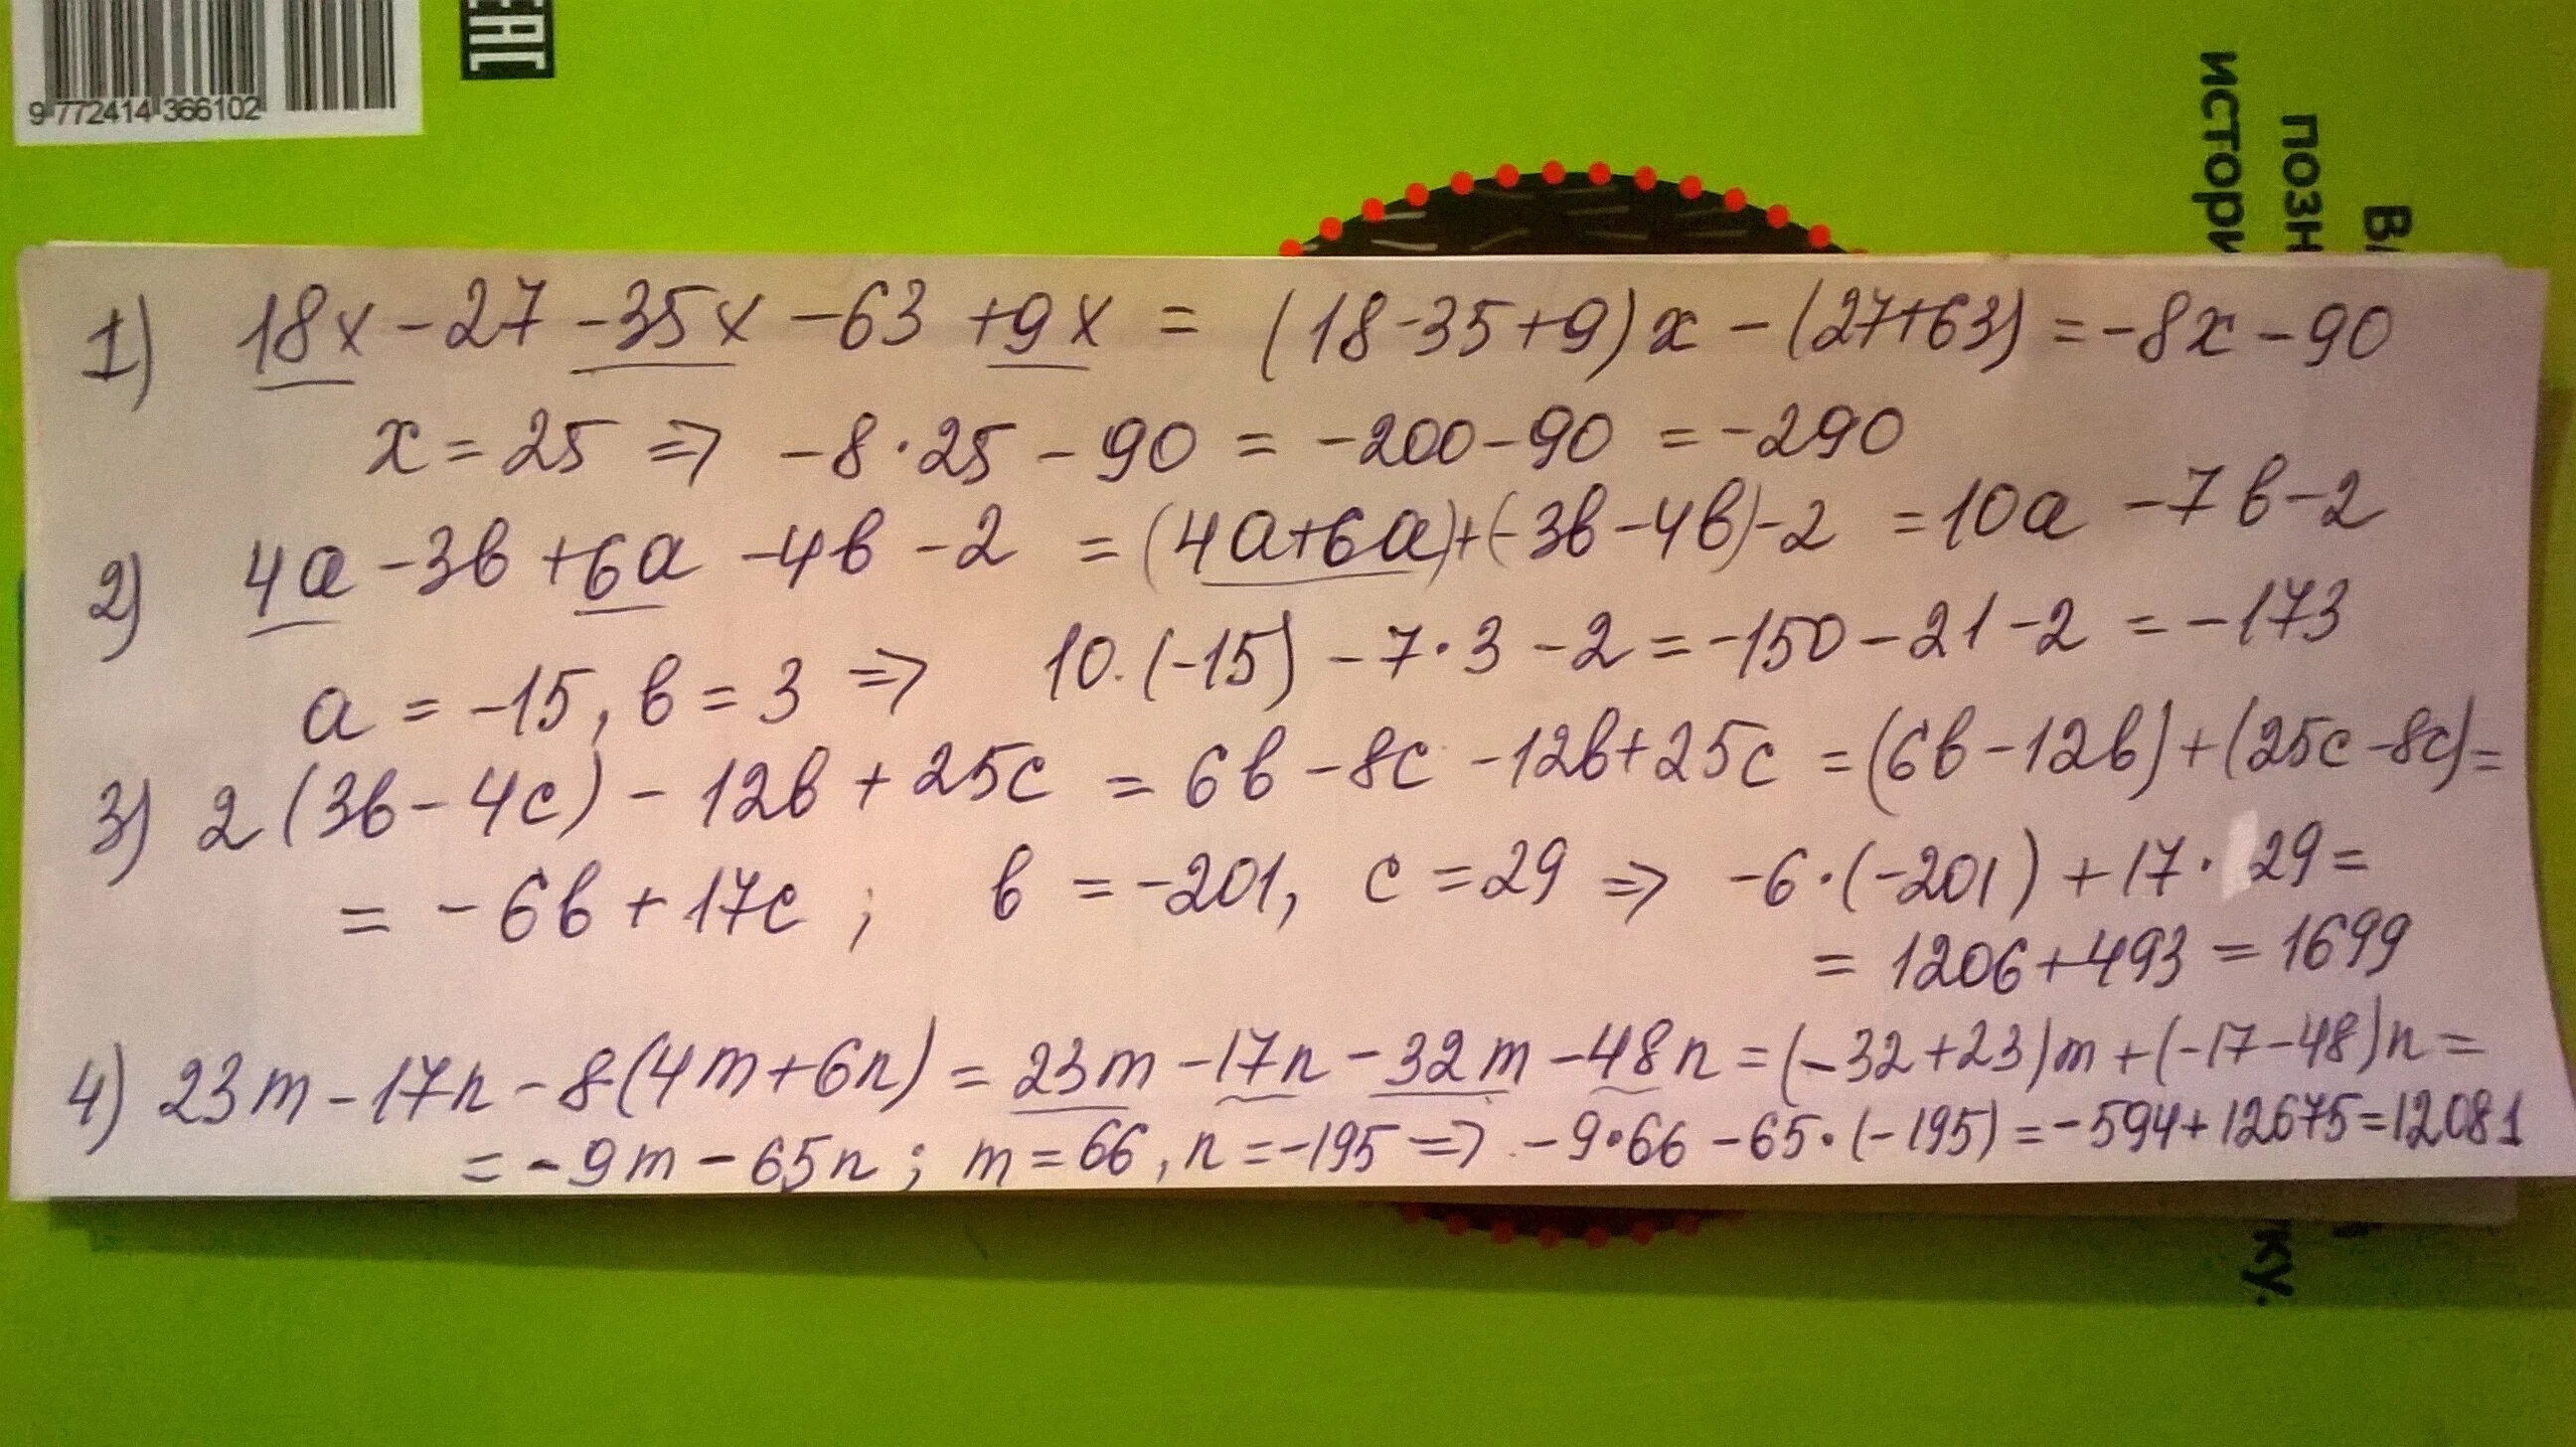 9 772414 366102
EAC
истори
позн
В
1) 18x - 27 - 35x - 63 + 9x = (18 - 35 + 9)x - (27+63) = -8x - 90
x = 25 => -8 · 25 - 90 = -200 - 90 = -290
2) 4a - 3b + 6a - 4b - 2 = (4a+6a)+(-3b-4b)-2 = 10a - 7b - 2
a = -15, b = 3 => 10·(-15) - 7·3 - 2 = -150 - 21 - 2 = -173
3) 2(3b - 4c) - 12b + 25c = 6b - 8c - 12b + 25c = (6b - 12b) + (25c - 8c) =
= -6b + 17c ; b = -201, c = 29 => -6·(-201) + 17· 29 =
= 1206 + 493 = 1699
4) 23m - 17n - 8(4m + 6n) = 23m - 17n - 32m - 48n = (-32 + 23)m + (-17 - 48)n =
= -9m - 65n ; m = 66, n = -195 => -9·66 - 65·(-195) = -594 + 12675 = 12081
ку.